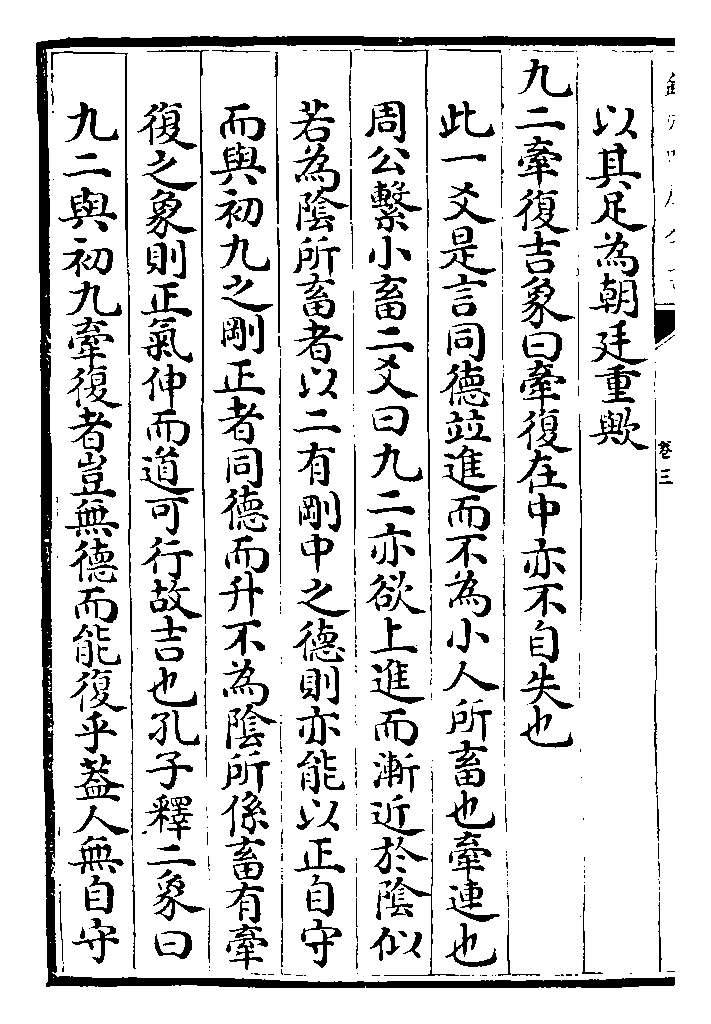 以其足為朝廷重歟
九二牽復吉象曰牽復在中亦不自失也
此一爻是言同德竝進而不為小人所畜也牽連也
周公繫小畜二爻曰九二亦欲上進而漸近於陰似
若為陰所畜者以二有剛中之德則亦能以正自守
而與初九之剛正者同德而升不為陰所係畜有牽
復之象則正氣伸而道可行故吉也孔子釋二象曰
九二與初九牽復者豈無德而能復乎蓋人無自守
卷三